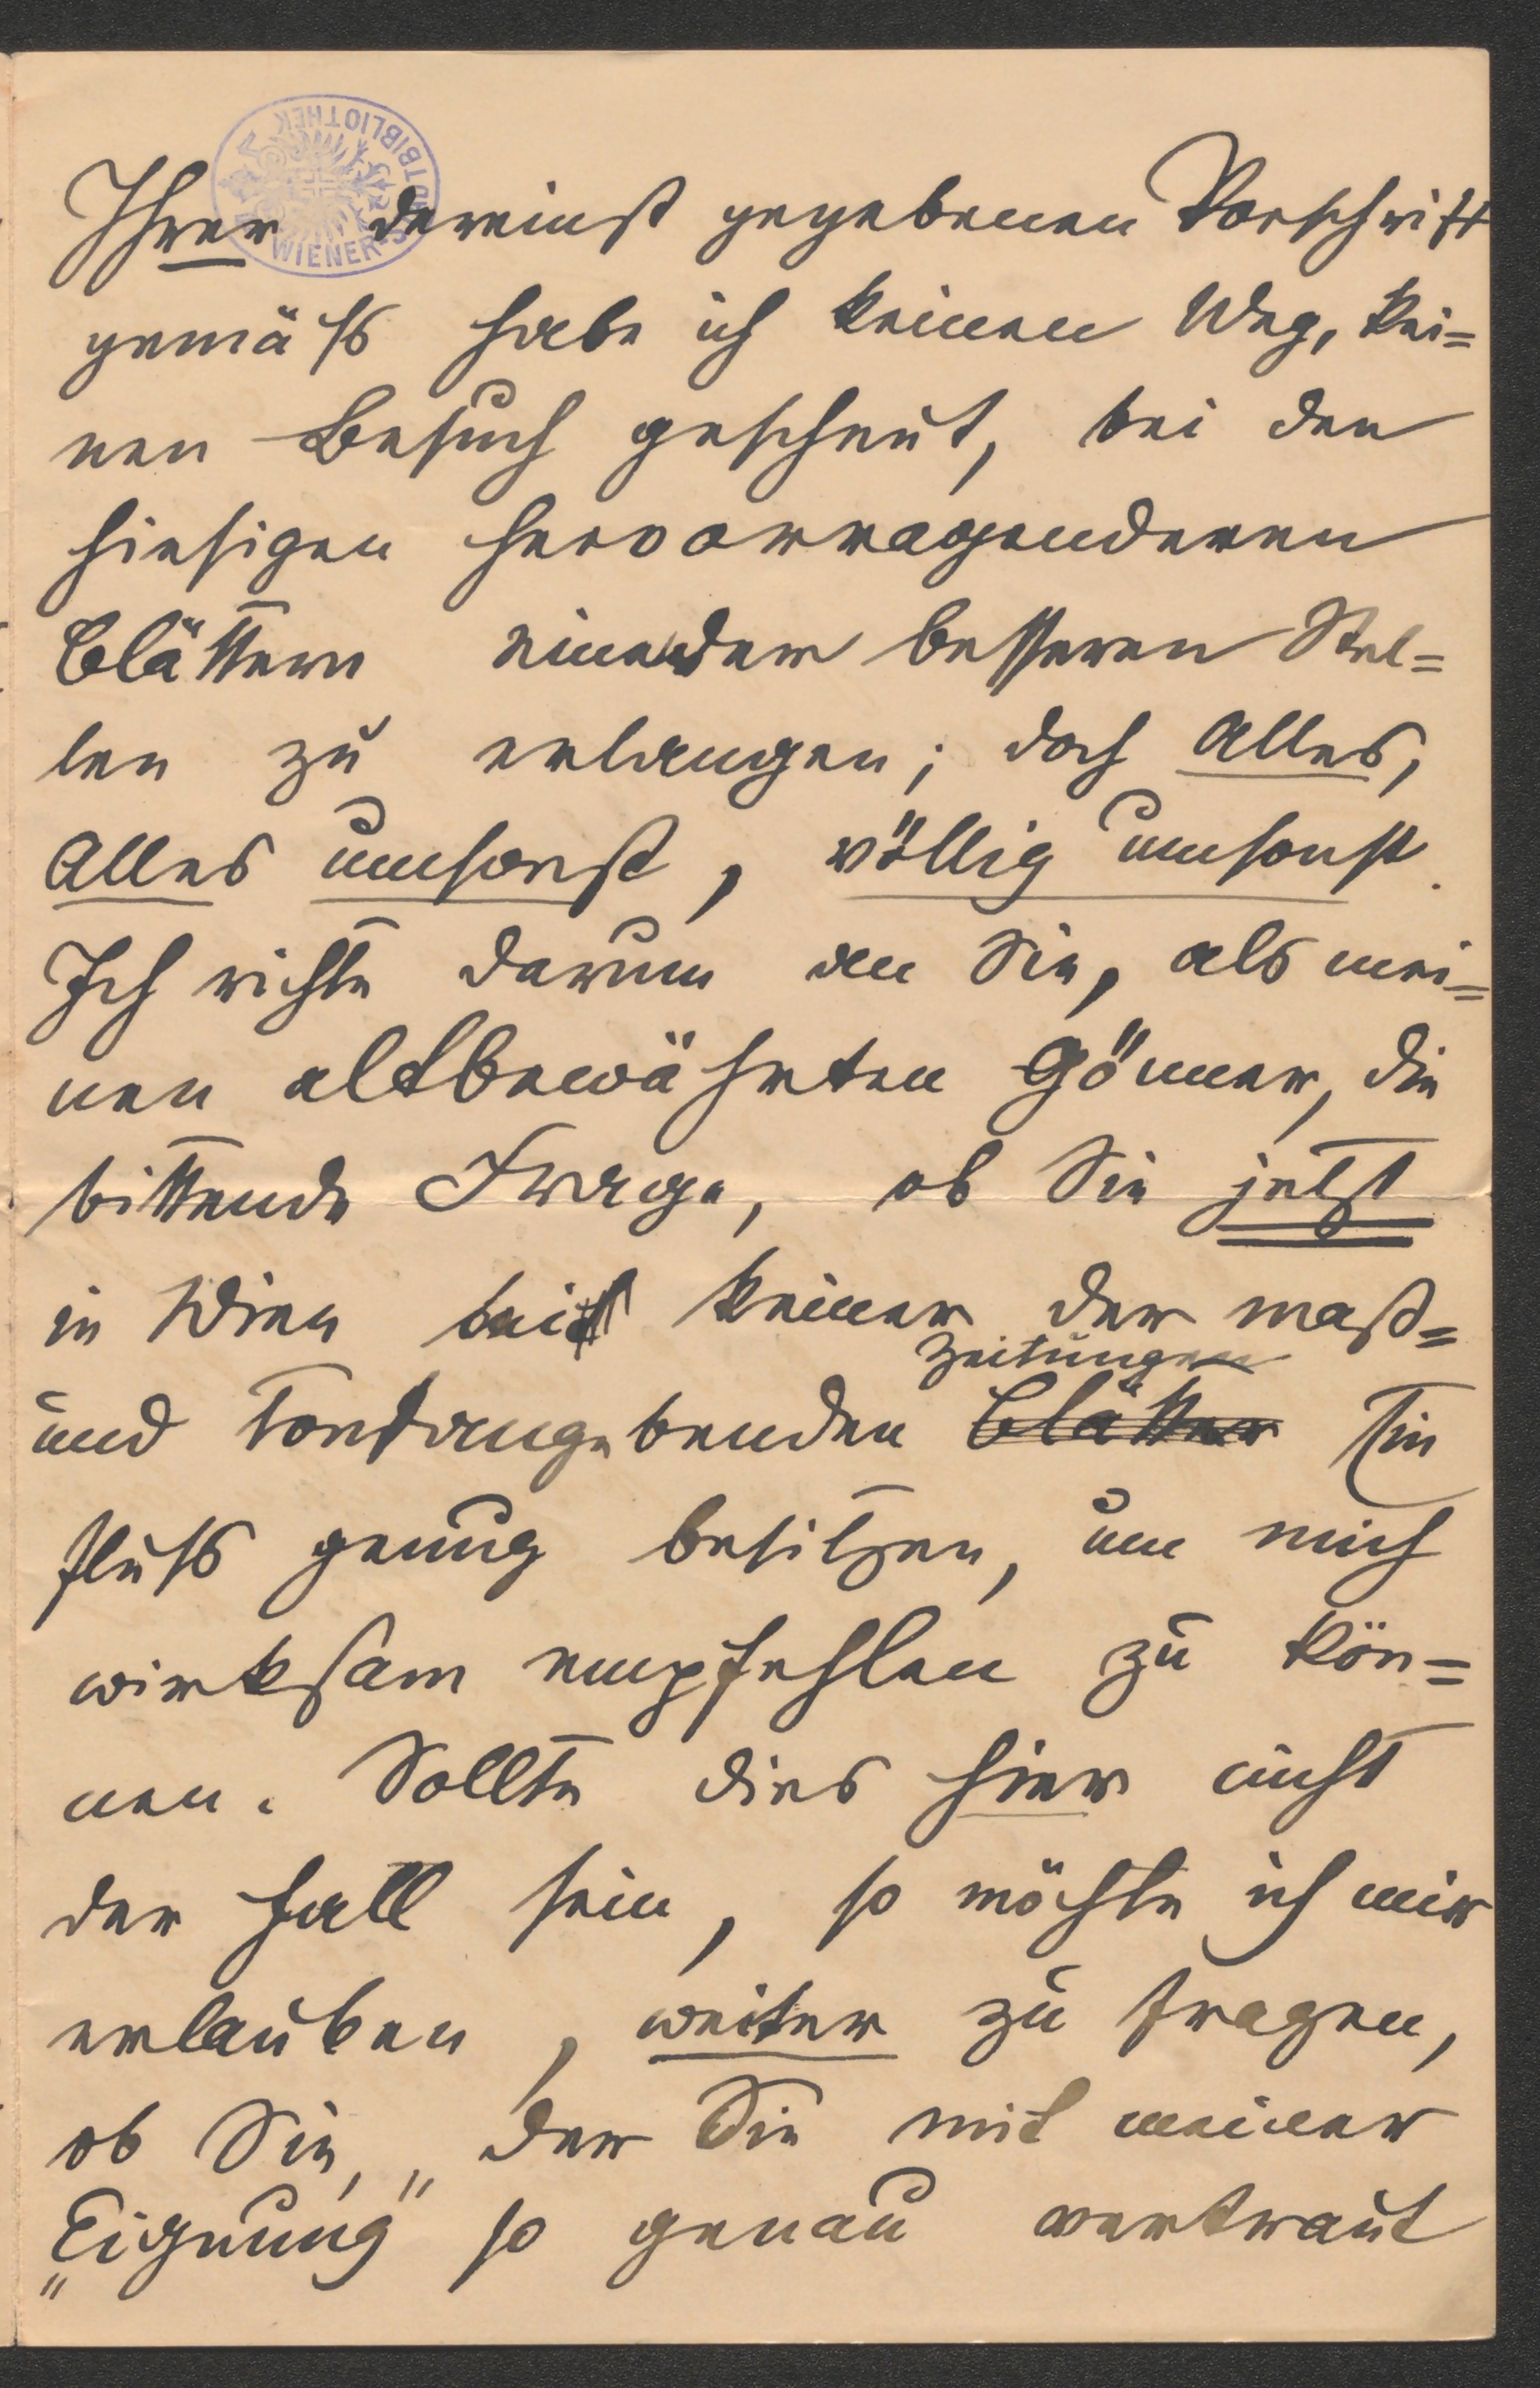 Ihrer dereinst gegebenen Vorschrift
gemäß habe ich keinen Weg, kei=
nen Besuch gescheut, bei den
hiesigen hervorragenderen
Blättern eine der besseren Stel=
len zu erlangen; doch Alles,
Alles umsonst, völlig umsonst.
Ich richte darum an Sie, als mei=
nen altbewährten Gönner, die
bittende Frage, ob Sie jetzt
in Wien bei keiner der maß=
Zeitungen
und tonangebenden Blätter Ein
fluß genug besitzen, um mich
wirksam empfehlen zu kön=
nen. Sollte dies hier nicht
der Fall sein, so möchte ich mir
erlauben, weiter zu fragen,
ob Sie, der Sie mit meiner
„Eignung" so genau vertraut
WIENER STADTBIBLIOTHEK